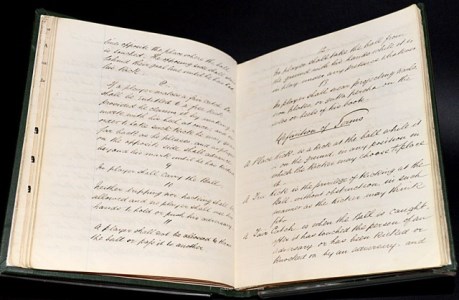 opposite the place where the ball
is touched. The opposing side shall
behind their goal line until he has had
his kick.
8
If a player makes a fair catch he
shall be entitled to a free kick,
provided he claims it by making a
mark with his heel at once; and in
order to take such kick he may go
as far back as he pleases, and no player
on the opposite side shall advance
beyond his mark until he has kicked.
9
No player shall carry the Ball.
10
Neither tripping nor hacking shall be
allowed and no player shall use his
hands to hold or push his adversary
11
A player shall not be allowed to throw
the ball or pass it to another
12
No player shall take the ball from
the ground with his hands while it is
in play under any pretence whatever
13
No player shall wear projecting nails
iron plates or gutta percha on the
soles or heels of his boots
Definition of Terms
A Place Kick is a kick at the ball while it
is on the ground, in any position in
which the Kicker may choose to place
it.
A Free Kick is the privilege of kicking at the
Ball without obstruction in such
manner as the Kicker may think
fit.
A Fair Catch is when the Ball is caught,
after it has touched the person of an
adversary or has been kicked or
knocked on by an adversary, and